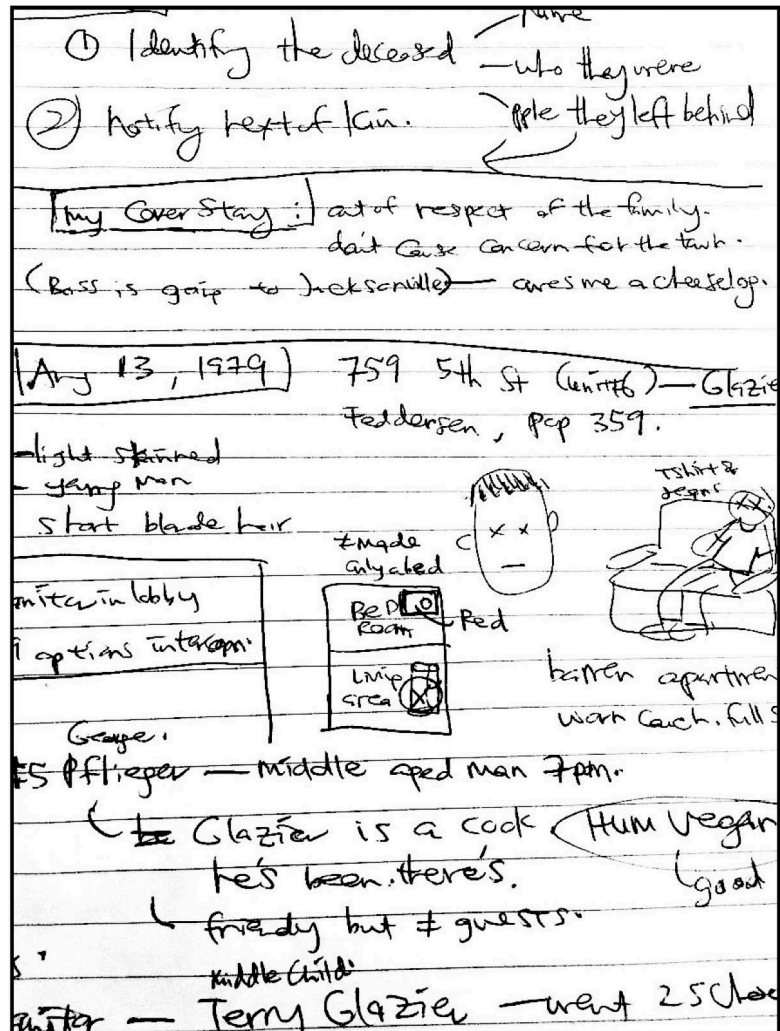 name
① Identify the deceased — who they were
② Notify next of kin. pple they left behind
My Cover Story : out of respect of the family.
don't cause concern for the town.
(Boss is going to Jacksonville) — owes me a cheeselog.
Aug 13, 1979 759 5th St (unit #6) — Glazie
Feddersen, pop 359.
- light skinned
- young man
short blade hair
≠ made
only a bed
Tshirt &
jeans
in lobby
options intercom.
BED ROOM
Bed
Living area
barren apartmen
worn couch. full
George.
#5 Pflieger — middle aged man 7pm.
Glazier is a cook Hum Vegan
he's been there's. good
friendly but ≠ guests.
Middle Child
— Terry Glazier — went 2 S